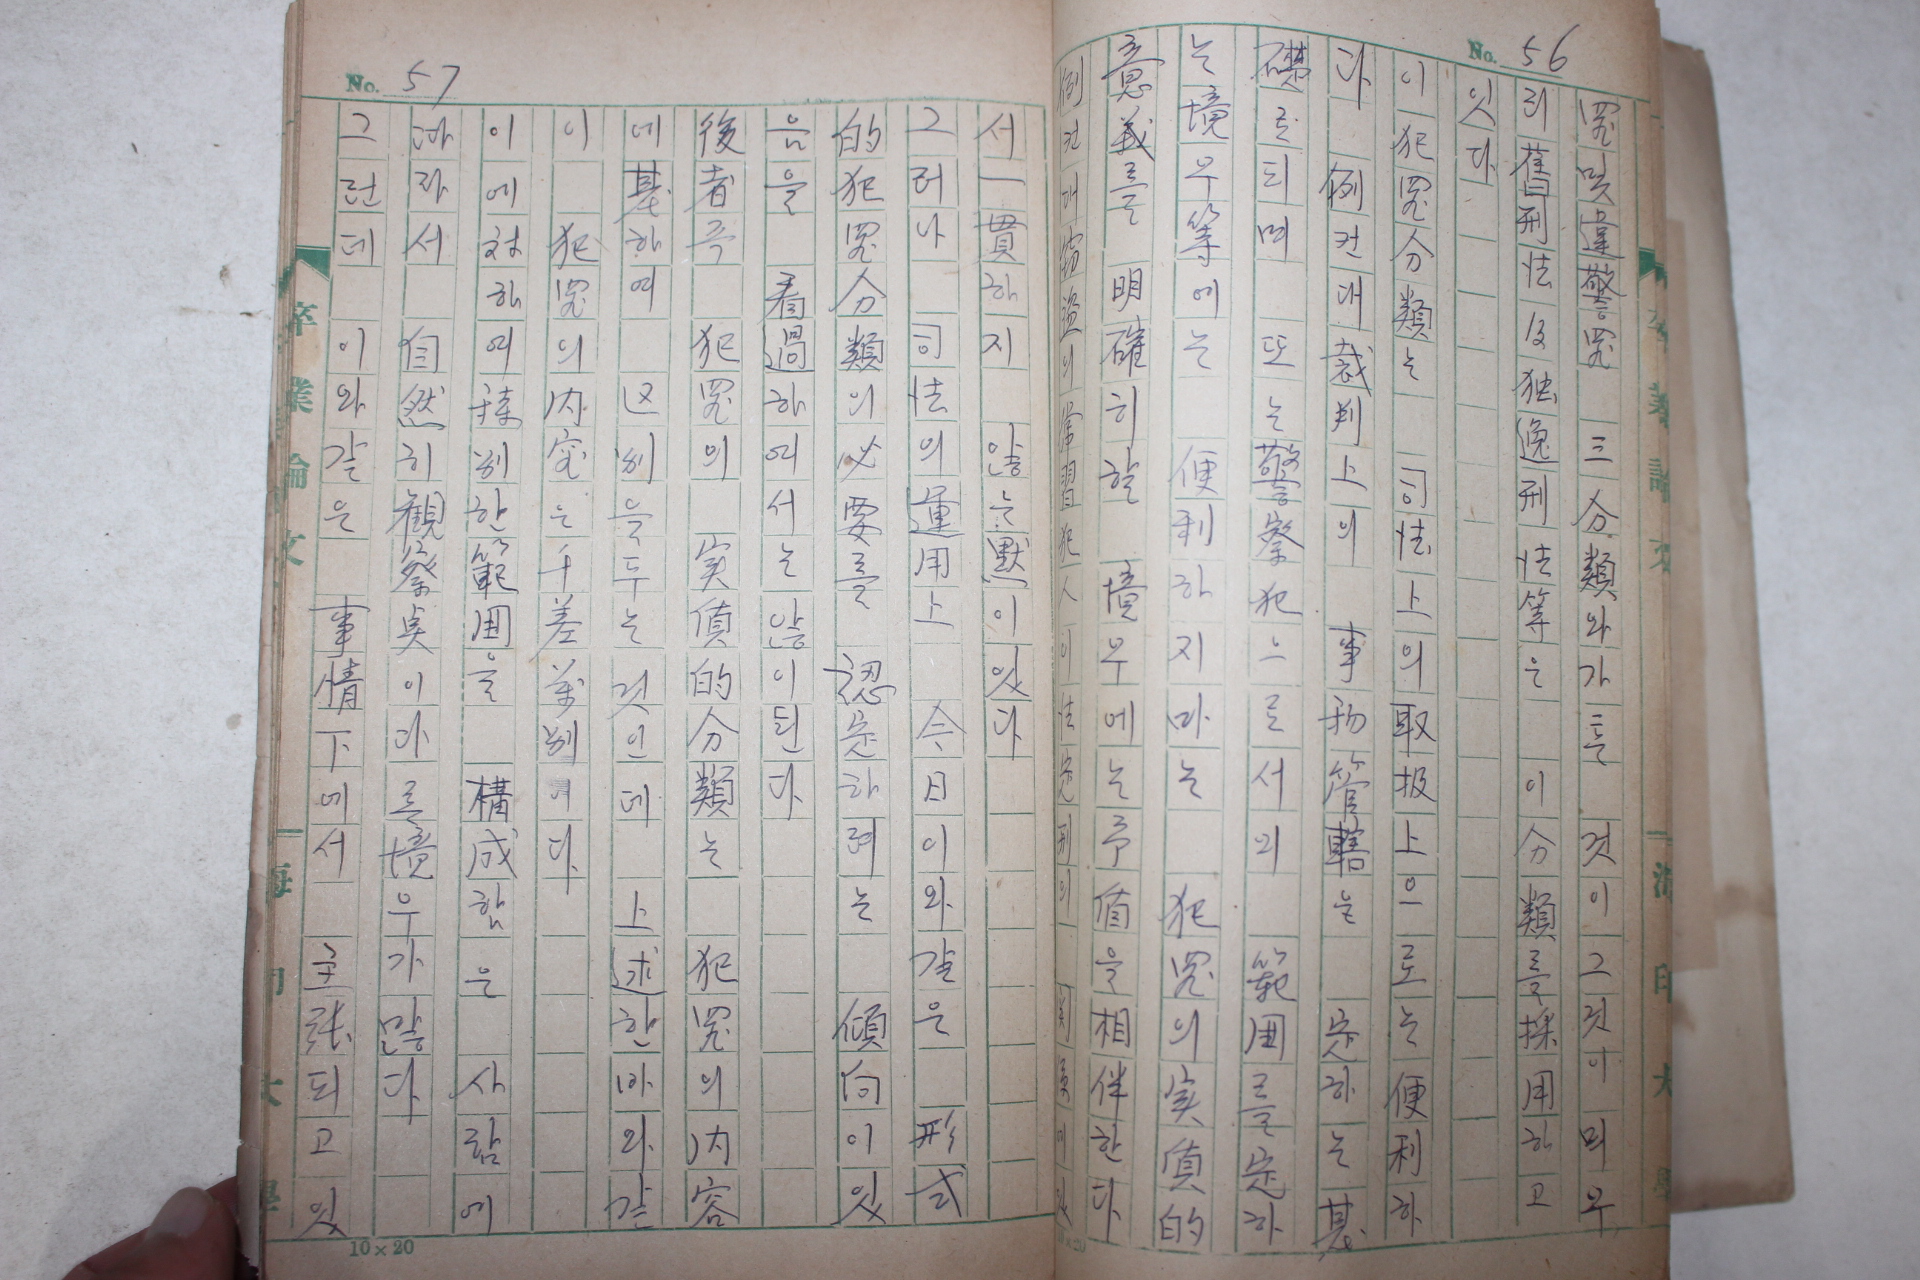 No. 56
罪 및 違警罪 三分類와가튼 것이그것이며우
리 舊刑法及独逸刑法等은 이分類를採用하고
잇다
이犯罪分類는 司法上의取扱上으로는便利하
다 例컨대裁判上의 事物管轄은 定하는基
礎로되며 또는警察犯으로서의 範囲를定하
는境우等에는 便利하지마는 犯罪의実質的
意義를 明確히할 境우에는 을相伴한다
例컨대窃盗의常習犯人이法定刑의
No. 57
서一貫하지 않는黙이있다
그러나 司法의運用上 今日이와갈은 形式
的犯罪分類의必要를 認定하려는 傾向이있
음을 看過하여서는않이된다
後者즉 犯罪의 実質的分類는 犯罪의内容
에基하여 区別을두는것인데 上述한바와갈
이 犯罪의内容은千差萬別이다
이에対하여特別한範囲을 構成함은 사람에
따라서 自然히観察点이다를境우가많다
그런데 이와갈은 事情下에서 主張되고있
10×20
卒業論文
海印大學